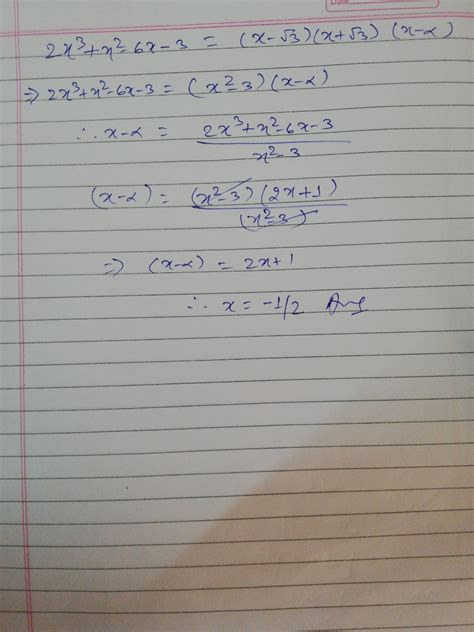 Date
2x³+x²-6x-3 = (x-√3)(x+√3) (x-α)
⇒ 2x³+x²-6x-3 = (x²-3)(x-α)
∴ x-α = 2x³+x²-6x-3
x²-3
(x-α) = (x²-3)(2x+1)
(x²-3)
⇒ (x-α) = 2x+1
∴ x = -1/2 Ans